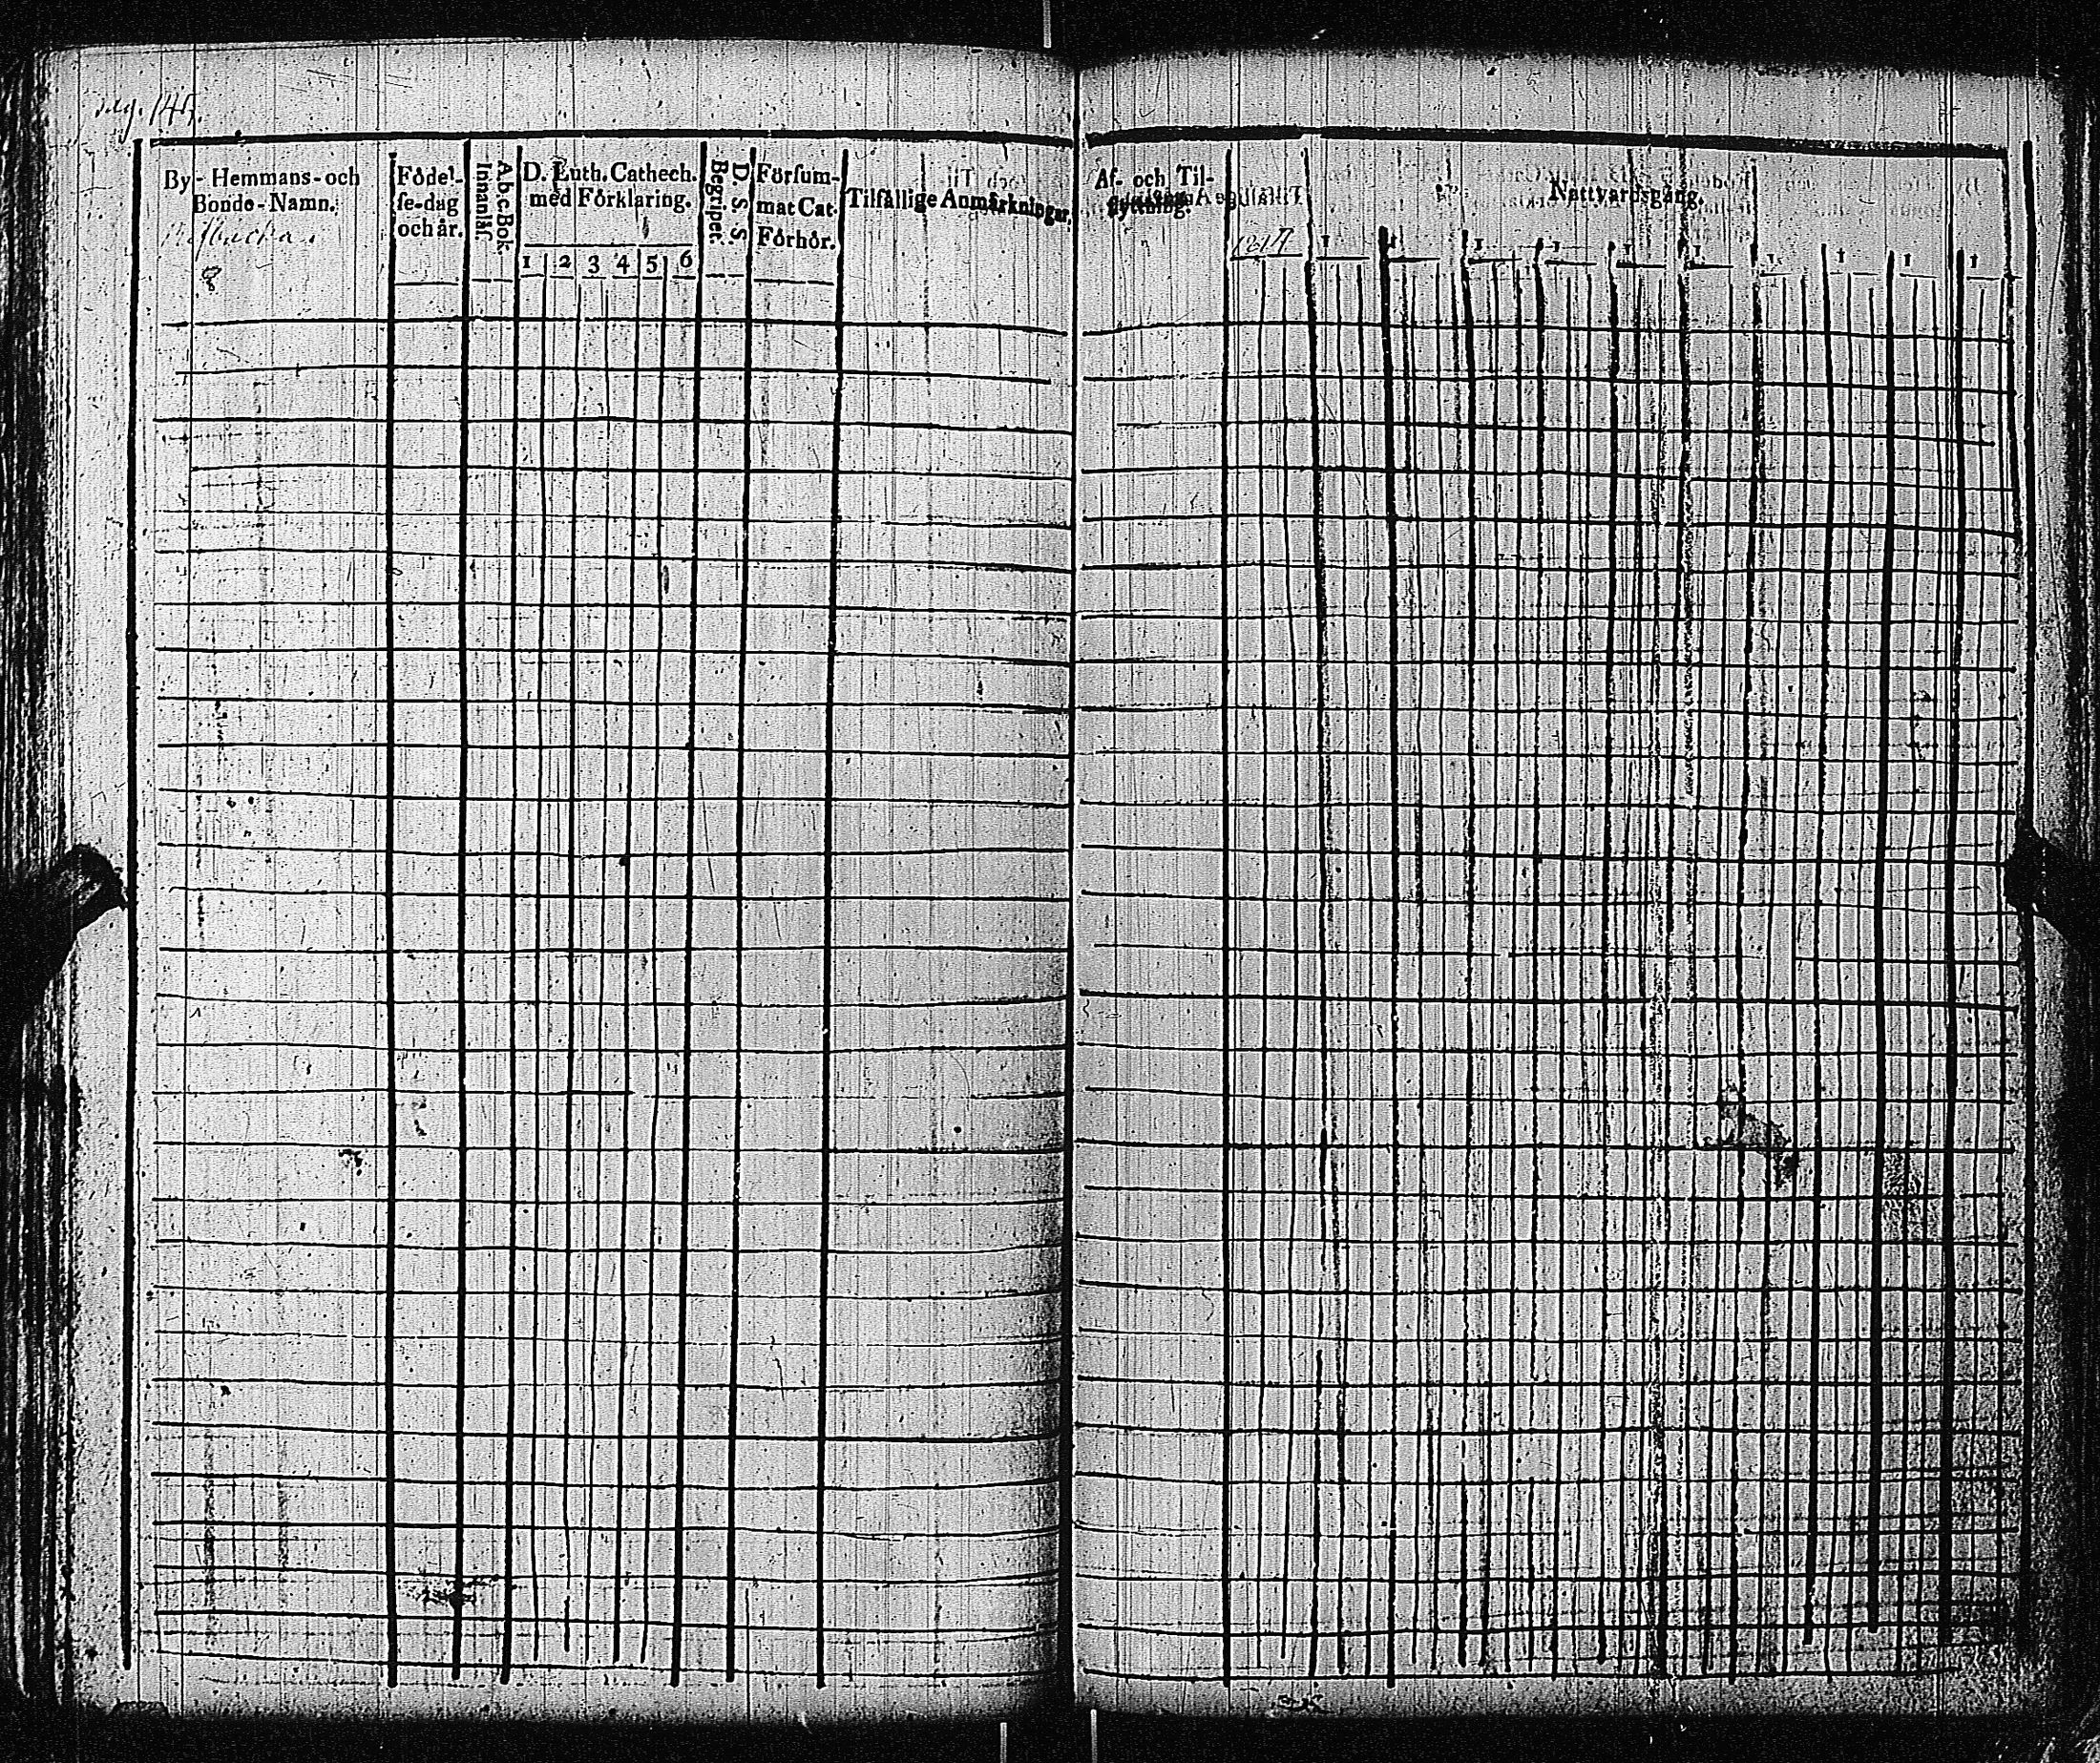 pag. 145.
By- Hemmans- och
Bonde-Namn.
8
Födel-
se-dag
och år.
A.b.c.Bok.
Innanläs.
D. Luth. Cathech.
med Förklaring.
1 2 3 4 5 6
D. S. S.
Begriper.
Försum-
mat Cat.
Förhör.
Tilfällige Anmärkningar.
Af- och Til-
flyttning.
Nattvardsgång.
181